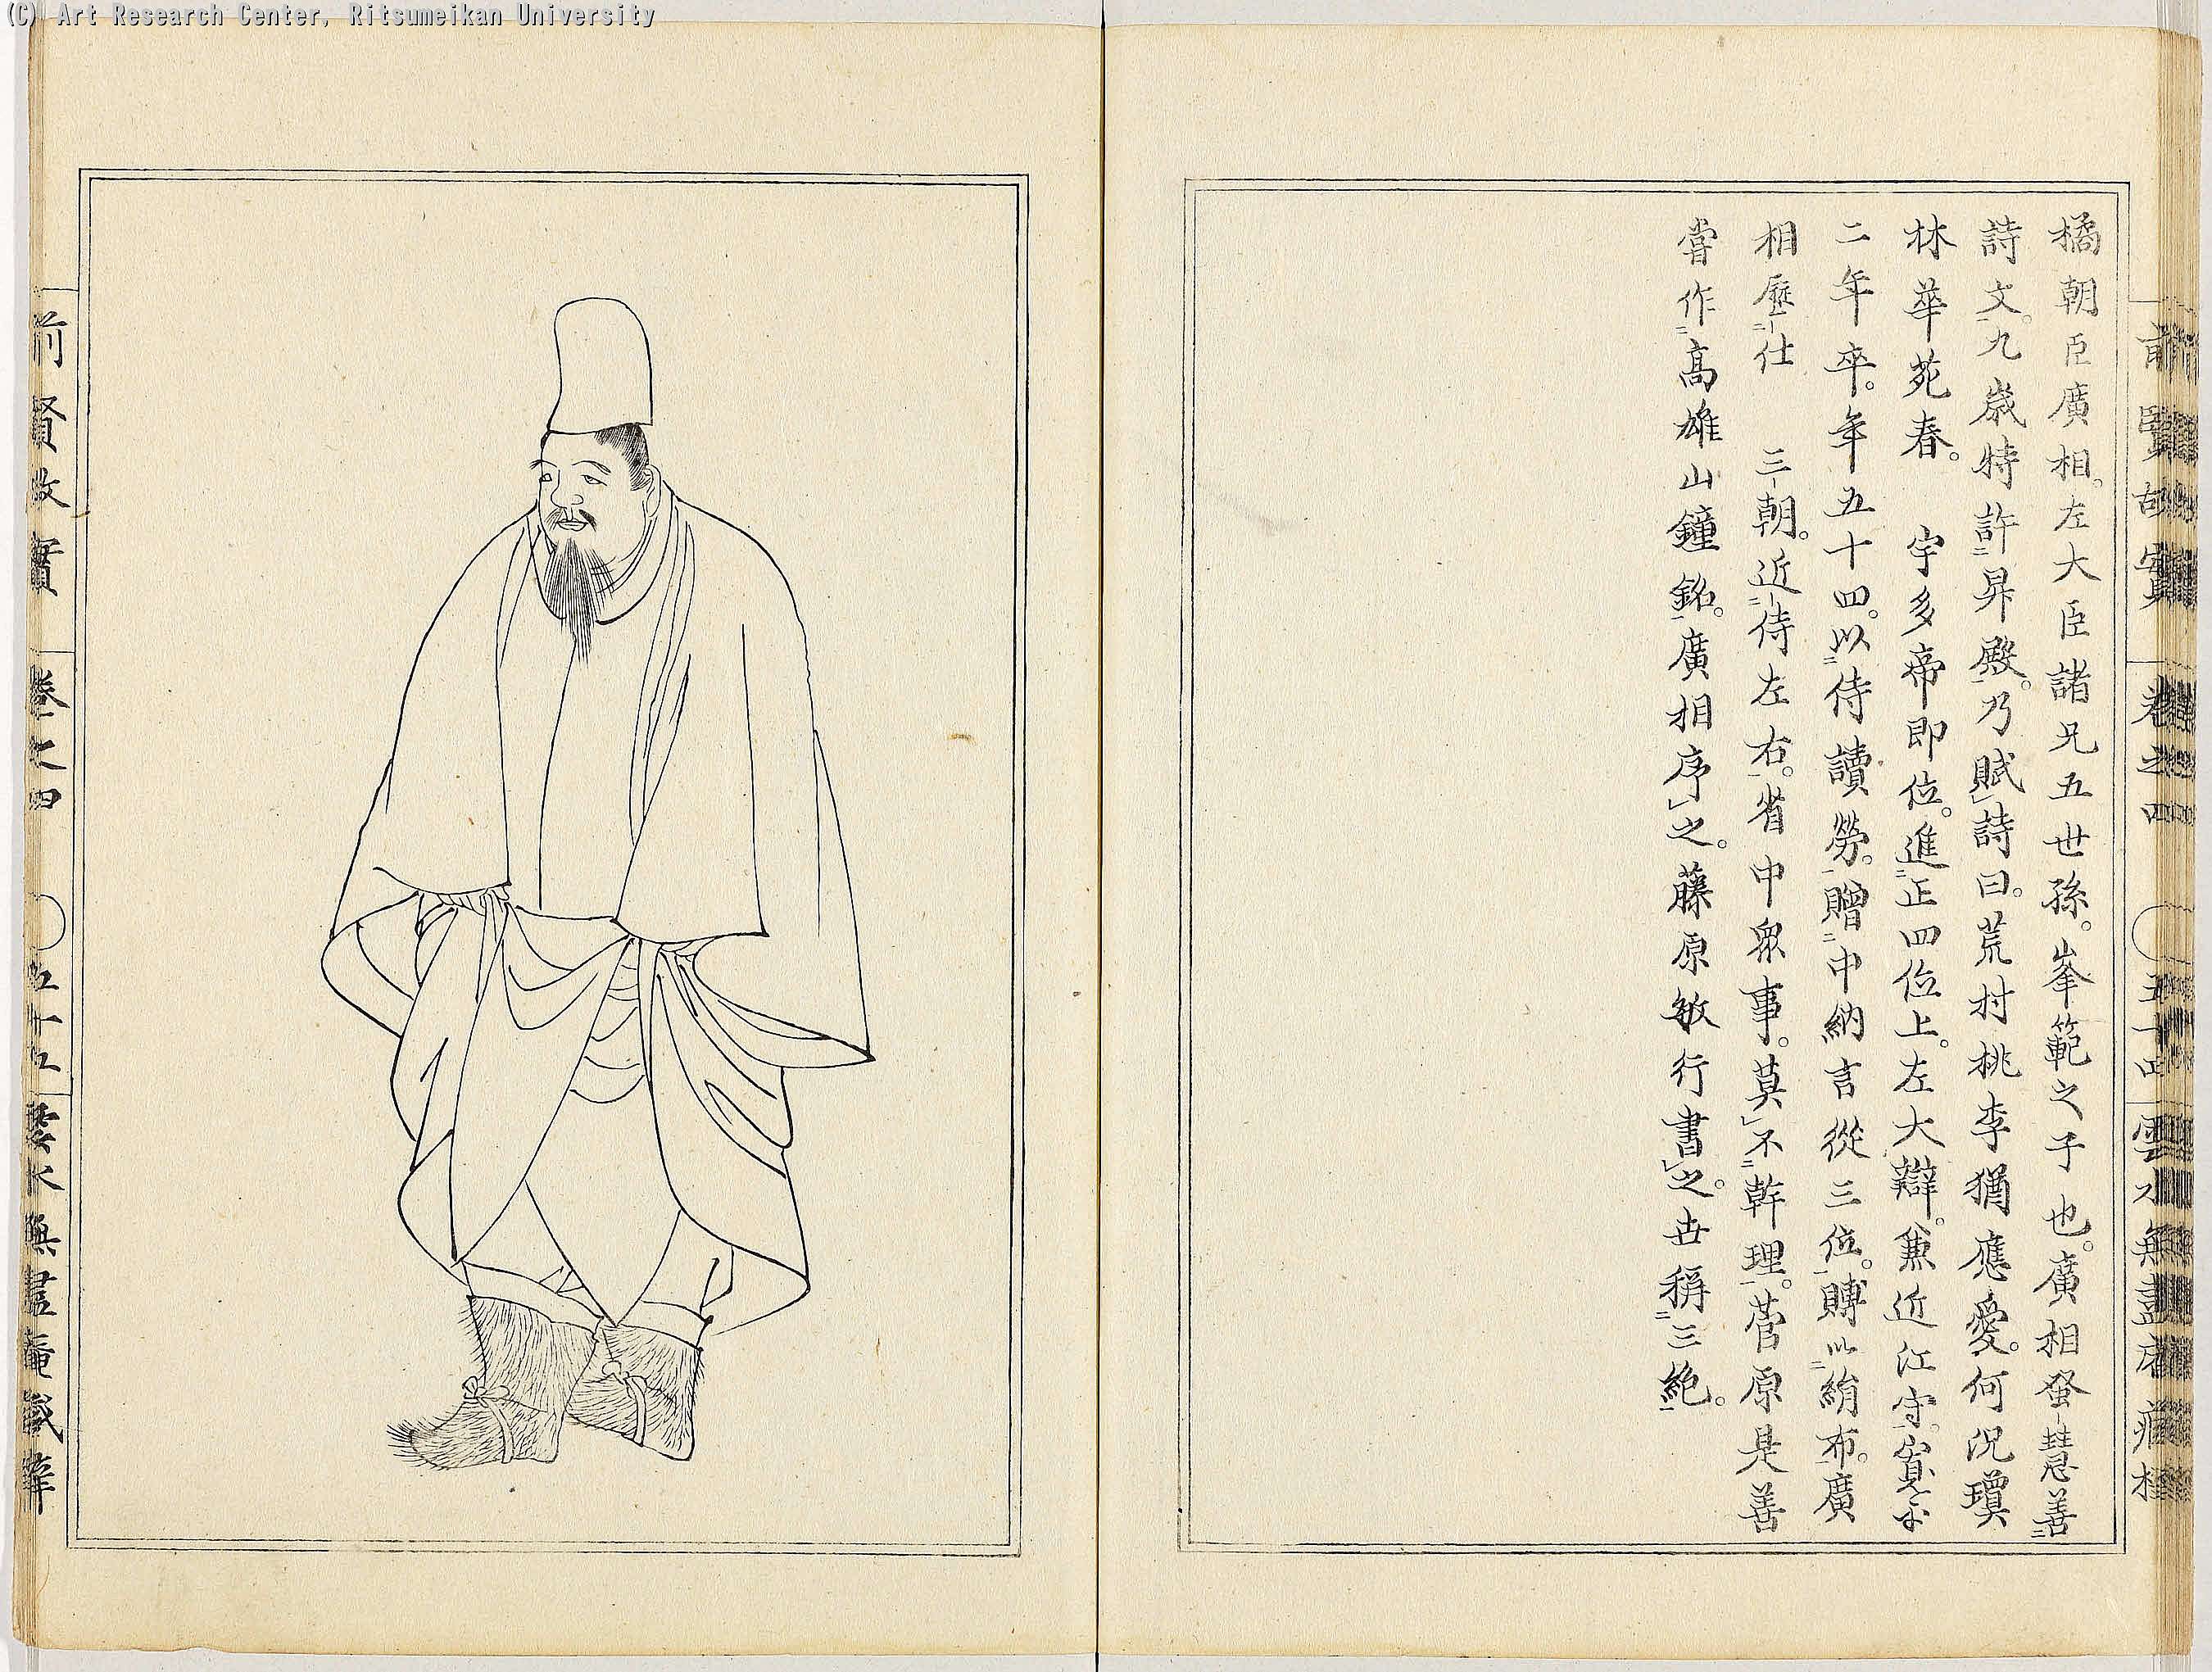 (C) Art Research Center, Ritsumeikan University
橘朝臣廣相。左大臣諸兄五世孫。峯範之子也。廣相蚤慧善
詩文。九歳特許昇殿。乃賦詩曰。荒村桃李猶應愛。何況瓊
林華苑春。 宇多帝即位。進正四位上。左大辯。兼近江守。寛平
二年卒。年五十四。以侍讀勞。贈中納言從三位。賻以絹布。廣
相歷仕 三朝。近侍左右。省中衆事。莫不幹理。菅原是善
嘗作高雄山鐘銘。廣相序之。藤原敏行書之。世稱三絶。
前賢故實 卷之四 五十四 雲水無盡庵
前賢故實 卷之四 五十五 雲水無盡庵藏梓